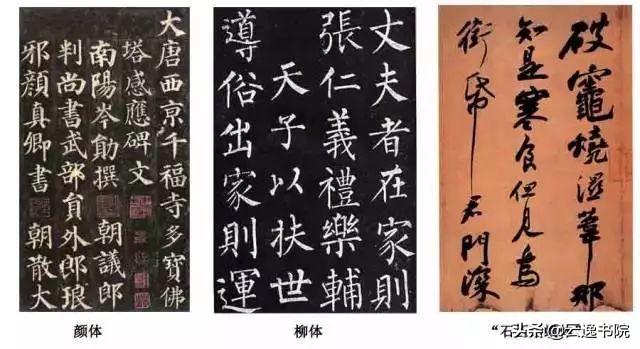 大唐西京千福寺多寶佛
塔感應碑文
南陽岑勛撰 朝議郎
判尚書武部員外郎琅
邪顏真卿書 朝散大
丈夫者在家則
張仁義禮樂輔
天子以扶世
導俗出家則運
破竈燒濕葦那
知是寒食但見烏
銜帋 君門深
颜体
柳体
“石
头条@云逸书院